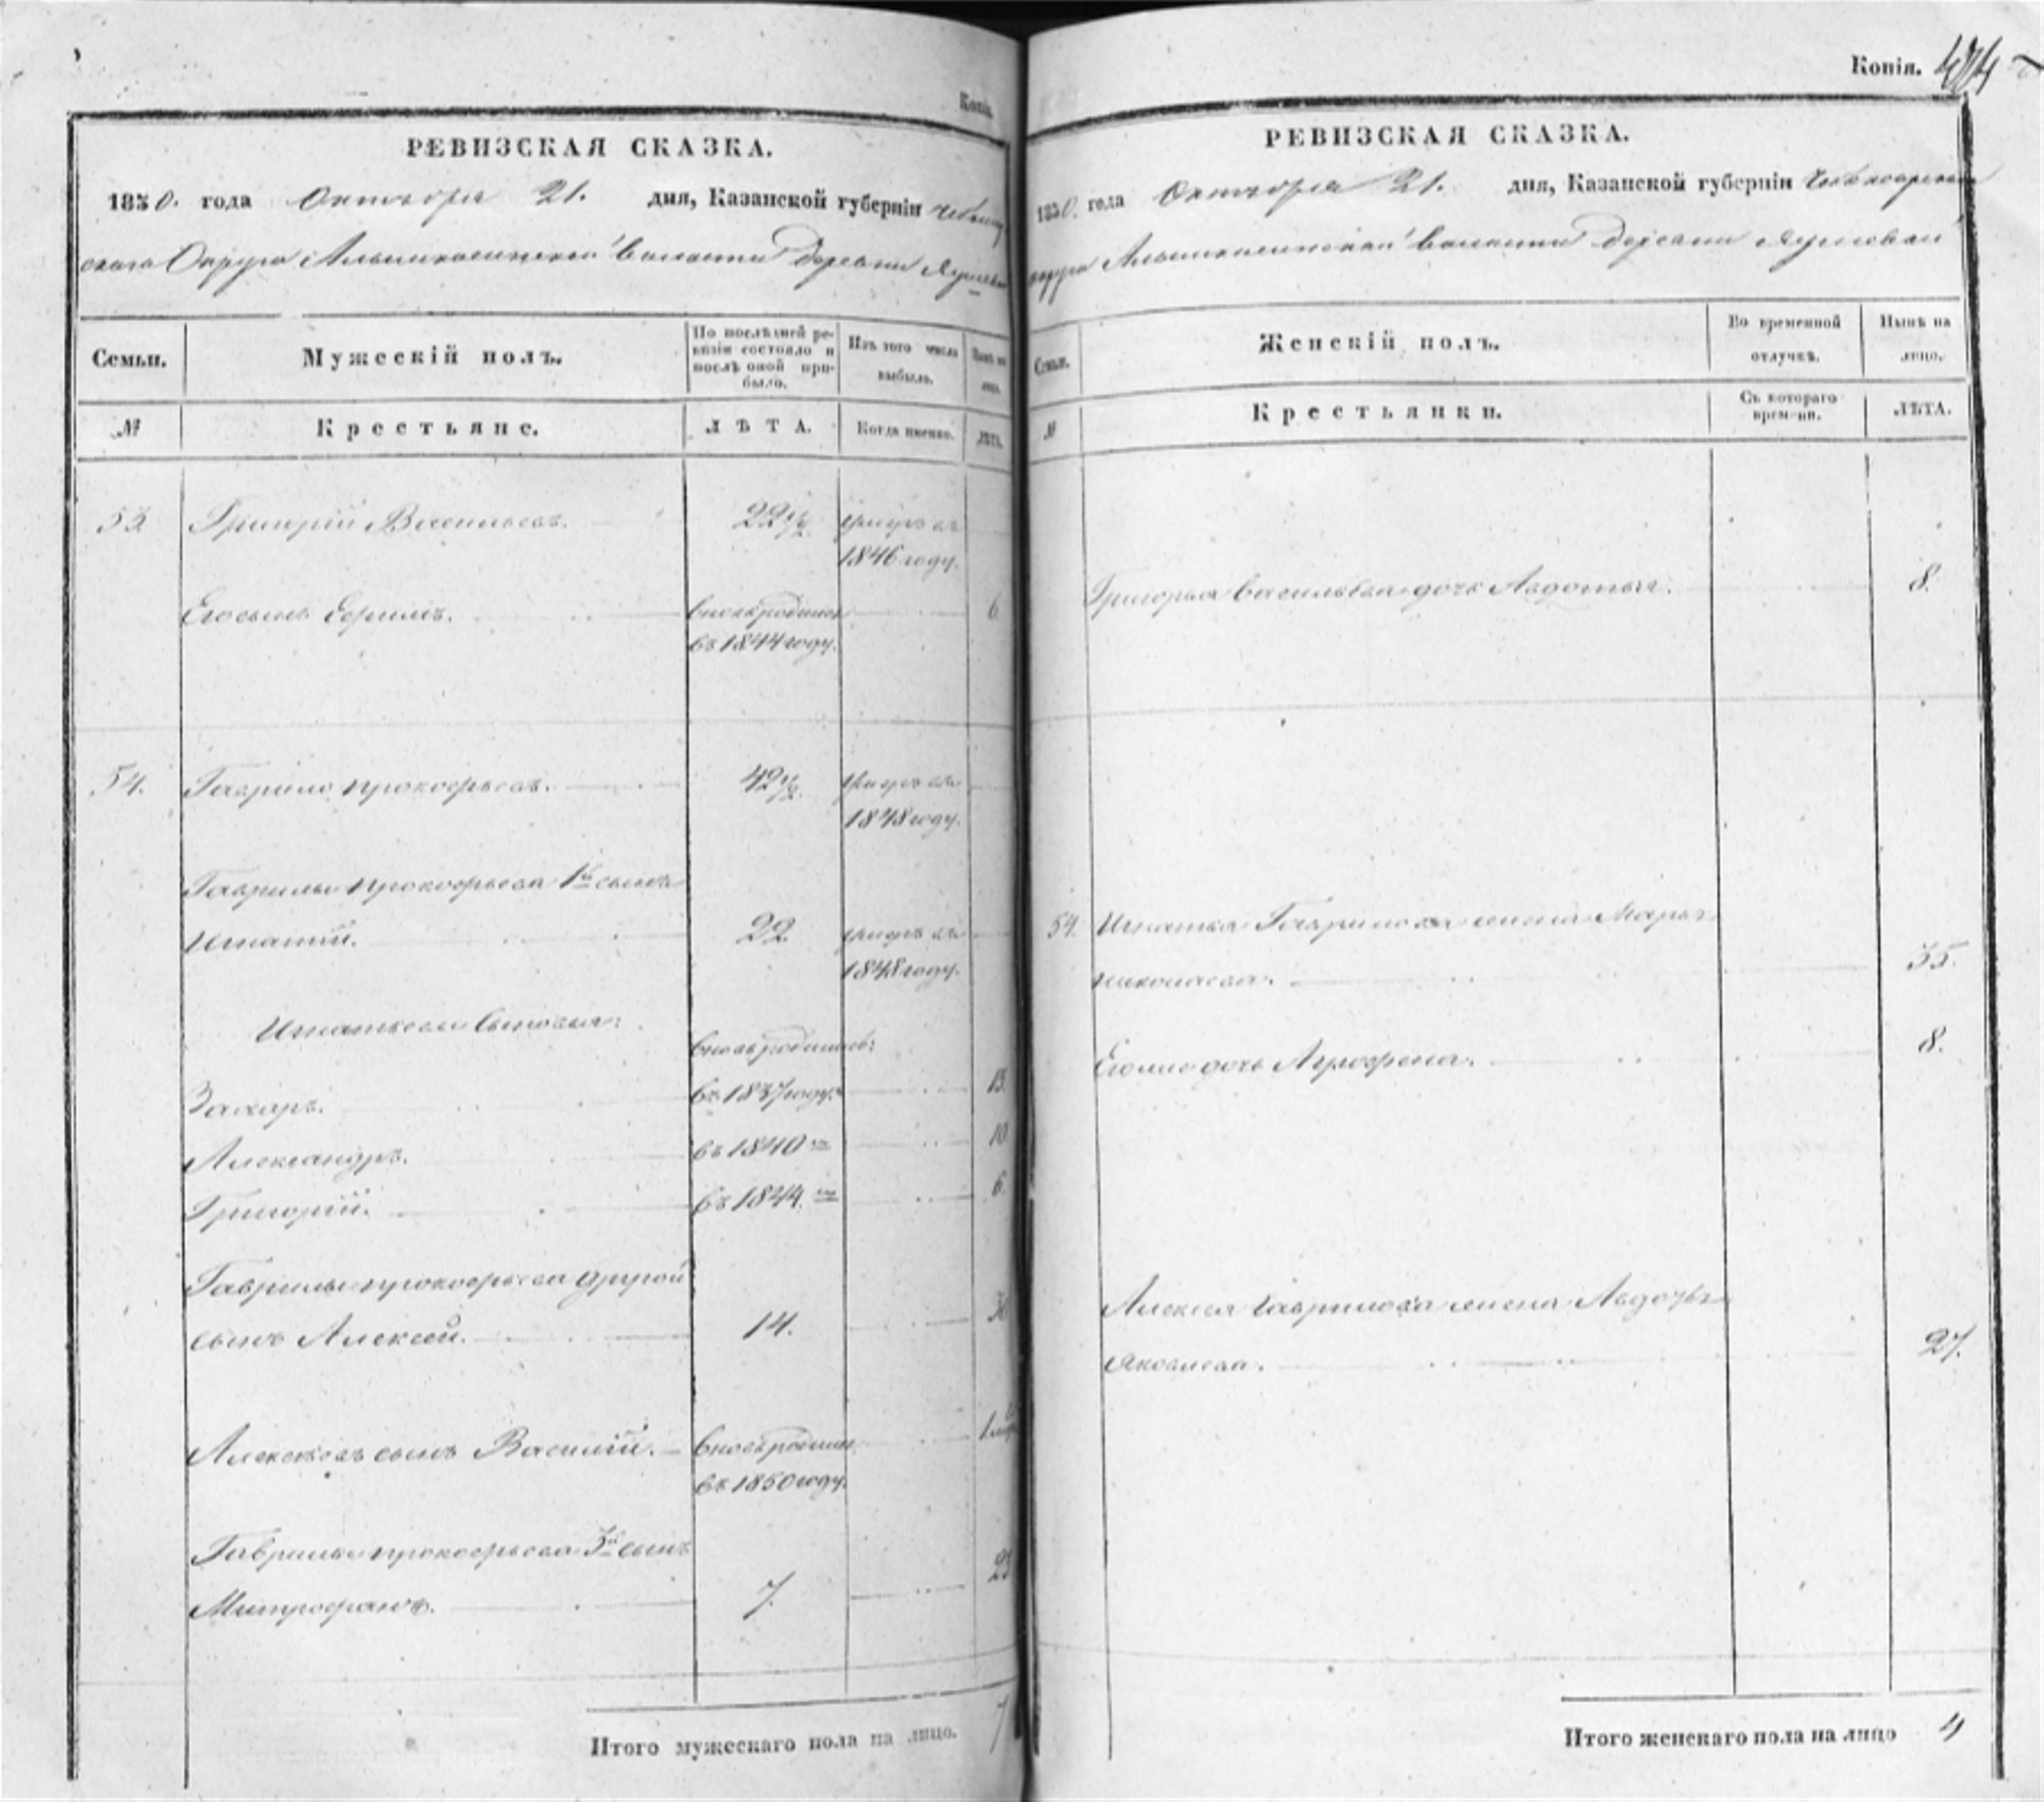 Копія.
РЕВИЗСКАЯ СКАЗКА.
1850. года Октября 21. дня, Казанской губерніи Чебоксар
скаго Округа Альшикасинской волости деревни
Семьи.
Мужескій полъ.
По послѣдней ре-
визіи состояло и
послѣ оной при-
было.
Изъ того числа
выбыло.
Нынѣ на
лицо.
№
Крестьяне.
ЛѢТА.
Когда именно.
ЛѢТА.
53. Григорій Васильевъ. 22½ умеръ въ
1846 году.
Его сынъ Ефимъ. вновь родился 6
въ 1844 году.
54. Гаврило Прокофьевъ. 42½ умеръ въ
1848 году.
Гаврилы Прокофьева 1й сынъ
Игнатій. 22 умеръ въ
1848 году.
Игнатьевы сыновья:
вновь родились:
Захаръ. въ 1837 году. 13.
Александръ. въ 1840 10
Григорій. въ 1844. 6
Гаврилы Прокофьева другой
сынъ Алексей. 14. 30
Алексѣевъ сынъ Василій. вновь родился 1
въ 1850 году.
Гаврилы Прокофьева 3й сынъ
Митрофанъ. 7. 23
Итого мужескаго пола на лицо. 7
Копія. 474
РЕВИЗСКАЯ СКАЗКА.
1850. года Октября 21. дня, Казанской губерніи Чебоксарскаго
округа Альшикасинской волости деревни
Семьи.
Женскій полъ.
Во временной
отлучкѣ.
Нынѣ на
лицо.
№
Крестьянки.
Съ котораго
времени.
ЛѢТА.
Григорья Васильева дочь Авдотья. 8.
54. Игнатья Гаврилова жена Марья
Николаева. 35.
Его дочь Агрофена. 8.
Алексея Гаврилова жена Авдотья
Яковлева. 27.
Итого женскаго пола на лицо 4